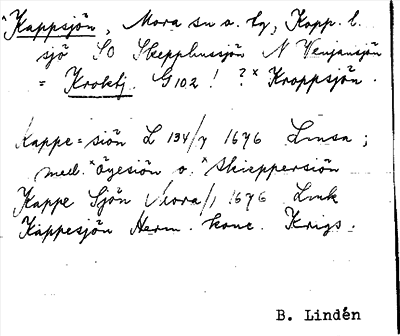 *Kappsjön, Mora sn o. hg, Kopp. l.
sjö SO Skepphussjön N Venjansjön
= Kroktj. G 102 ! ?* Kroppsjön.
Kappe=siön L 134/7 1676 Lmsa;
med *Öyesiön o. *Skieppersiön
Kappe Sjön Mora/1 1676 Lmk
Kappesjön Herm. konc. Krigs.
B. Lindén